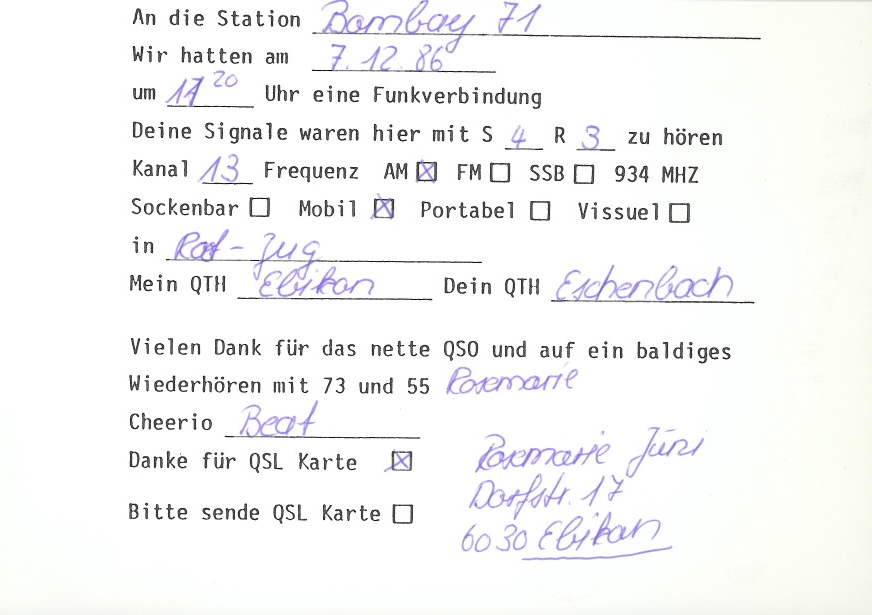 An die Station Bombay 71
Wir hatten am 7.12.86
um 17 20 Uhr eine Funkverbindung
Deine Signale waren hier mit S 4 R 3 zu hören
Kanal 13 Frequenz AM ☒ FM ☐ SSB ☐ 934 MHZ
Sockenbar ☐ Mobil ☒ Portabel ☐ Vissuel ☐
in Rot-Zug
Mein QTH Ebikon Dein QTH Eschenbach
Vielen Dank für das nette QSO und auf ein baldiges
Wiederhören mit 73 und 55 Rosmarie
Cheerio Beat
Danke für QSL Karte ☒
Bitte sende QSL Karte ☐
Rosmarie Jüni
Dorfstr. 17
6030 Ebikon